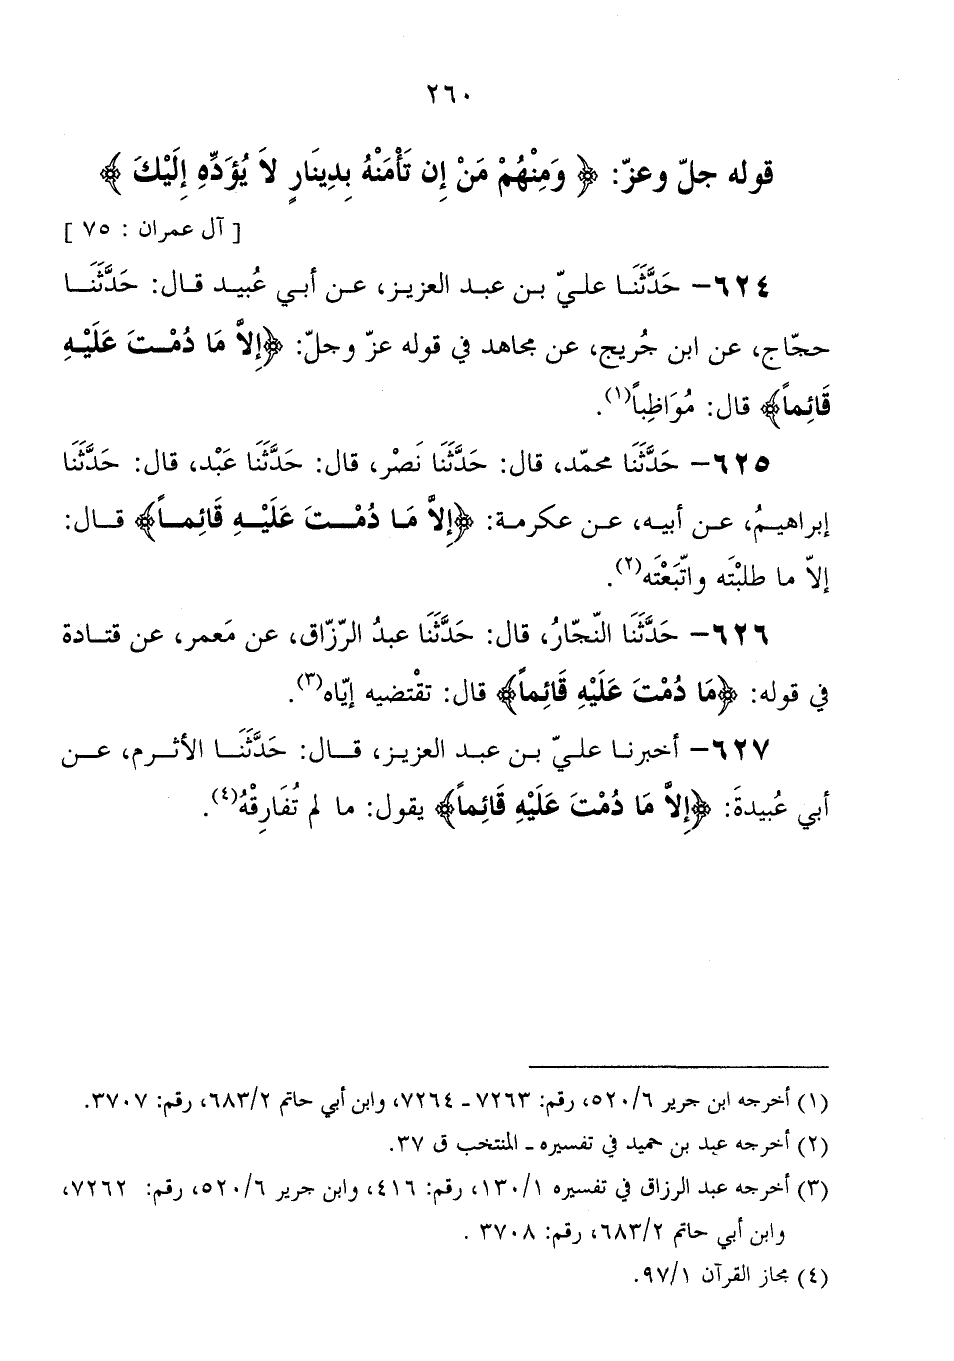 ٢٦٠
قوله جلّ وعزّ: ﴿ وَمِنْهُمْ مَنْ إِن تَأْمَنْهُ بِدِينَارٍ لاَ يُؤَدِّهِ إِلَيْكَ ﴾
[ آل عمران : ٧٥ ]
٦٢٤- حَدَّثَنَا عليّ بن عبد العزيز، عن أبي عُبيد قال: حَدَّثَنَا
حجّاج، عن ابن جُريج، عن مجاهد في قوله عزّ وجلّ: ﴿إِلاَّ مَا دُمْتَ عَلَيْهِ
قَائِماً﴾ قال: مُوَاظِباً(١).
٦٢٥- حَدَّثَنَا محمّد، قال: حَدَّثَنَا نَصْر، قال: حَدَّثَنَا عَبْد، قال: حَدَّثَنَا
إبراهيمُ، عن أبيه، عن عكرمة: ﴿إِلاَّ مَا دُمْتَ عَلَيْهِ قَائِماً﴾ قال:
إلاّ ما طلبْتَه واتّبَعْتَه(٢).
٦٢٦- حَدَّثَنَا النّجّارُ، قال: حَدَّثَنَا عبدُ الرّزّاق، عن مَعمر، عن قتادة
في قوله: ﴿مَا دُمْتَ عَلَيْهِ قَائِماً﴾ قال: تقْتضيه إيّاه(٣).
٦٢٧- أخبرنا عليّ بن عبد العزيز، قال: حَدَّثَنَا الأثرم، عن
أبي عُبيدةَ: ﴿إِلاَّ مَا دُمْتَ عَلَيْهِ قَائِماً﴾ يقول: ما لم تُفَارِقْهُ(٤).
(١) أخرجه ابن جرير ٥٢٠/٦، رقم: ٧٢٦٣ ـ ٧٢٦٤، وابن أبي حاتم ٦٨٣/٢، رقم: ٣٧٠٧.
(٢) أخرجه عبد بن حميد في تفسيره ـ المنتخب ق ٣٧.
(٣) أخرجه عبد الرزاق في تفسيره ١٣٠/١، رقم: ٤١٦، وابن جرير ٥٢٠/٦، رقم: ٧٢٦٢،
وابن أبي حاتم ٦٨٣/٢، رقم: ٣٧٠٨ .
(٤) مجاز القرآن ٩٧/١.